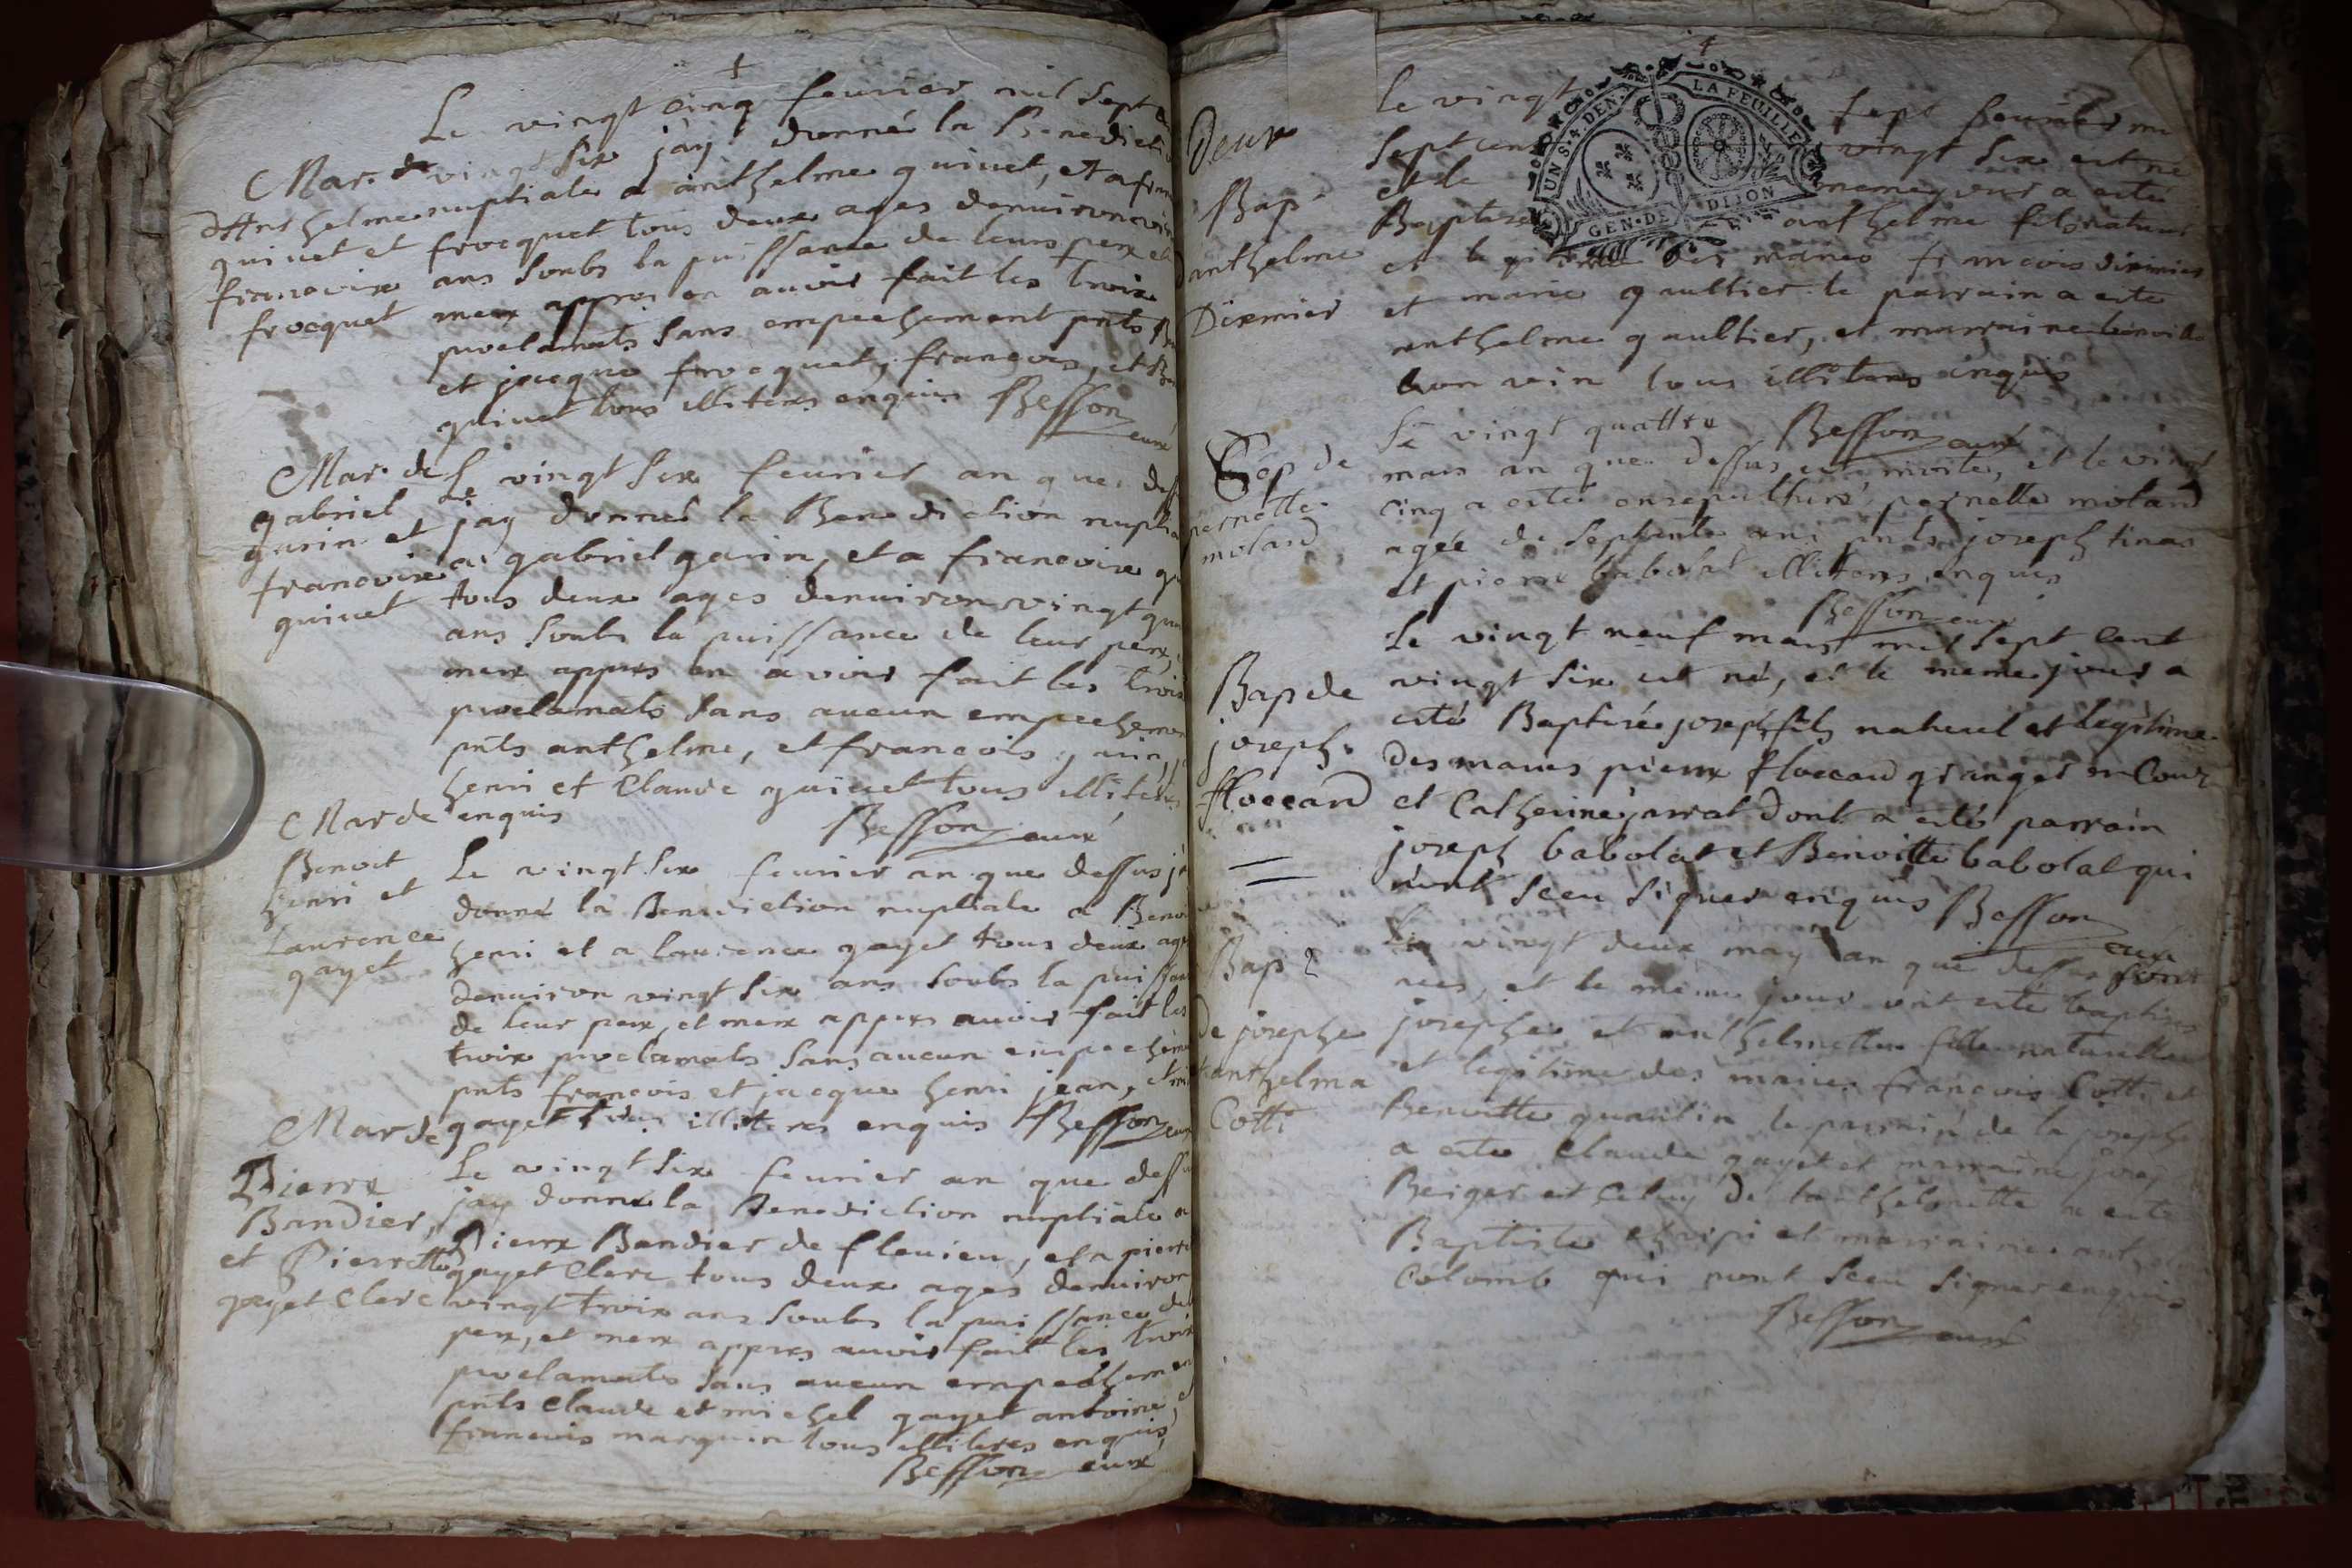 Le vingt cinq feurier mil sept
Mar. de vingt six jay donné la Benedicti
dAnthelme nuptiale a anthelme guinet, et a fran
guinet et frocquet tous deux ages denuiron
francoise ans soubs la puissance de leurs pere et
frocquet mere appres en auoir fait les trois
proclamats sans empeschement pnts
et jacque frocquet, francois, et
guinet tous illiteres enquis Besson curé
Mar. de Le vingt six feurier an que des
gabriel
garin et jay donnés la Benediction nuptia
francoise a gabriel garin, et a francoise gu
guinet tous deux ages denuiron vingt qua
ans soubs la puissance de leur pere,
mere appres en avoir fait les trois
proclamats sans aucun empechemen
pnts anthelme, et francois garin,
henri et Claude guinet tous illiteres
Mar de enquis Besson curé
Benoit Le vingt six feurier an que dessus j
henri et donné la Benediction nuptiale a Beno
Laurence henri et a laurence gayet tous deux ages
gayet denuiron vingt six ans soubs la puissan
de leur pere, et mere appres auoir fait les
trois proclamats sans aucun empecheme
pnts francois et jacque henri jean, et
Mar de gayet tous illiteres enquis Besson curé
Pierre Le vingt six feurier an que dessu
Bandier, jay donné la Benediction nuptiale a
et Pierrette Pierre Bandier de fleuieu, et a pierre
gayet Clerc gayet Clerc tous deux ages denuiron
vingt trois ans soubs la puissance de
pere, et mere appres auoir fait les trois
proclamats sans aucun empechemen
pnts Claude et michel gayet antoine, et
francois marguin tous illiteres enquis
Besson curé
Deux le vingt sept feurier mi
sept cent vingt six est né
Bap. et le meme jour a esté
anthelme Baptisé anthelme fils naturel
Dixmier et legitime des maries francois dixmier
et marie gaultier le parrain a esté
anthelme gaultier, et marraine benoitte
bon vin tous illiteres enquis
Besson curé
Sep de Le vingt quattre
pernette mars an que dessus est morte, et le vingt
molard cinq a esté ensepulturé pernette molard
agée de septante ans pnts joseph tinas
et pierre babolat illiteres enquis
Besson curé
Le vingt neuf mars mil sept cent
Bap de vingt six est né, et le meme jour a
joseph esté Baptisé joseph fils naturel et legitime
floccard des maries pierre floccard granger en Cour
et Catherine jarrat dont a esté parrain
joseph babolat et Benoitte babolat qui
nont sceu signer enquis Besson curé
Bap 2 Le vingt deux may an que dessus sont
nees, et le meme jour ont esté baptises
de josephe josephe et anthelmette fille naturelle
et anthelma et legitime des maries francois Cotti et
Cotti Benoitte quantin le parrain de la josephe
a esté Claude gayet et marraine jose
Beiger et celuy de lanthelmette a esté
Baptiste et marraine anth
Colomb qui nont sceu signer enquis
Besson curé
UN S. 4. DEN.
LA FEUILLE
GEN. DE DIJON